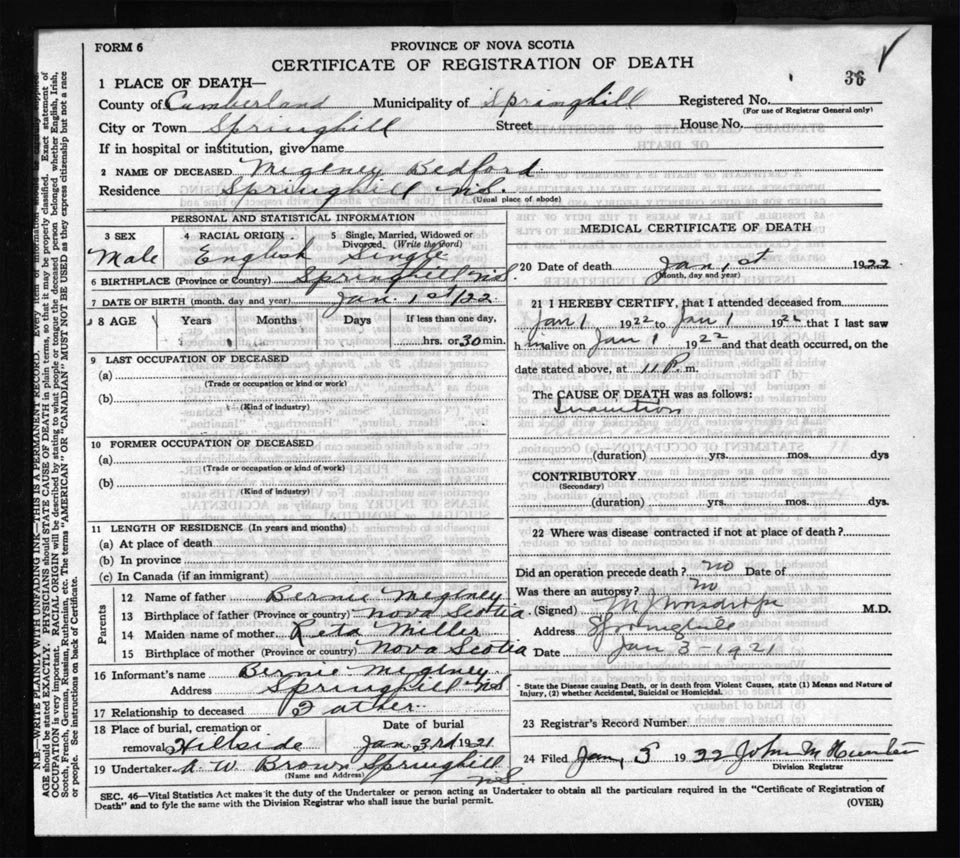 FORM 6
PROVINCE OF NOVA SCOTIA
CERTIFICATE OF REGISTRATION OF DEATH
36
1 PLACE OF DEATH—
County of Cumberland Municipality of Springhill Registered No.
(For use of Registrar General only)
City or Town Springhill Street House No.
If in hospital or institution, give name
2 NAME OF DECEASED Megeney Bedford
Residence Springhill N.S.
(Usual place of abode)
PERSONAL AND STATISTICAL INFORMATION
3 SEX
Male
4 RACIAL ORIGIN
English
5 Single, Married, Widowed or Divorced. (Write the word)
Single
6 BIRTHPLACE (Province or Country) Springhill N.S.
7 DATE OF BIRTH (month, day and year) Jan. 1st/22
8 AGE Years Months Days If less than one day,
hrs. or 30 min.
9 LAST OCCUPATION OF DECEASED
(a)
(Trade or occupation or kind or work)
(b)
(Kind of industry)
10 FORMER OCCUPATION OF DECEASED
(a)
(Trade or occupation or kind or work)
(b)
(Kind of industry)
11 LENGTH OF RESIDENCE (In years and months)
(a) At place of death
(b) In province
(c) In Canada (if an immigrant)
Parents
12 Name of father Bernie Megeney
13 Birthplace of father (Province or country) Nova Scotia
14 Maiden name of mother Reta Miller
15 Birthplace of mother (Province or country) Nova Scotia
16 Informant's name Bernie Megeney
Address Springhill N.S.
17 Relationship to deceased Father
18 Place of burial, cremation or removal Hillside
Date of burial
Jan 3rd 1921
19 Undertaker A. W. Brown Springhill
(Name and Address) N.S.
MEDICAL CERTIFICATE OF DEATH
20 Date of death Jan 1st 1922
(Month, day and year)
21 I HEREBY CERTIFY, that I attended deceased from
Jan 1 1922 to Jan 1 1922 that I last saw
him alive on Jan 1 1922 and that death occurred, on the
date stated above, at 11 P. m.
The CAUSE OF DEATH was as follows:
Inanition
(duration) yrs. mos. dys
CONTRIBUTORY
(Secondary)
(duration) yrs. mos. dys.
22 Where was disease contracted if not at place of death?
Did an operation precede death? no Date of
Was there an autopsy? no
(Signed) M.D.
Address Springhill
Date Jan 3-1921
* State the Disease causing Death, or in death from Violent Causes, state (1) Means and Nature of
Injury, (2) whether Accidental, Suicidal or Homicidal.
23 Registrar's Record Number
24 Filed Jan, 5 1922 John M
Division Registrar
SEC. 46—Vital Statistics Act makes it the duty of the Undertaker or person acting as Undertaker to obtain all the particulars required in the "Certificate of Registration of
Death" and to fyle the same with the Division Registrar who shall issue the burial permit.
(OVER)
N.B.—WRITE PLAINLY WITH UNFADING INK—THIS IS A PERMANENT RECORD. Every item of information should be
AGE should be stated EXACTLY. PHYSICIANS should STATE CAUSE OF DEATH in plain terms, so that it may be properly classified. Exact statement of
OCCUPATION is very important. RACIAL ORIGIN will be described by stating to what people or tongue the deceased person belonged whether English, Irish,
Scotch, French, German, Russian, Ruthenian, etc. The terms "AMERICAN" OR "CANADIAN" MUST NOT BE USED as they express citizenship but not a race
or people. See instructions on back of Certificate.